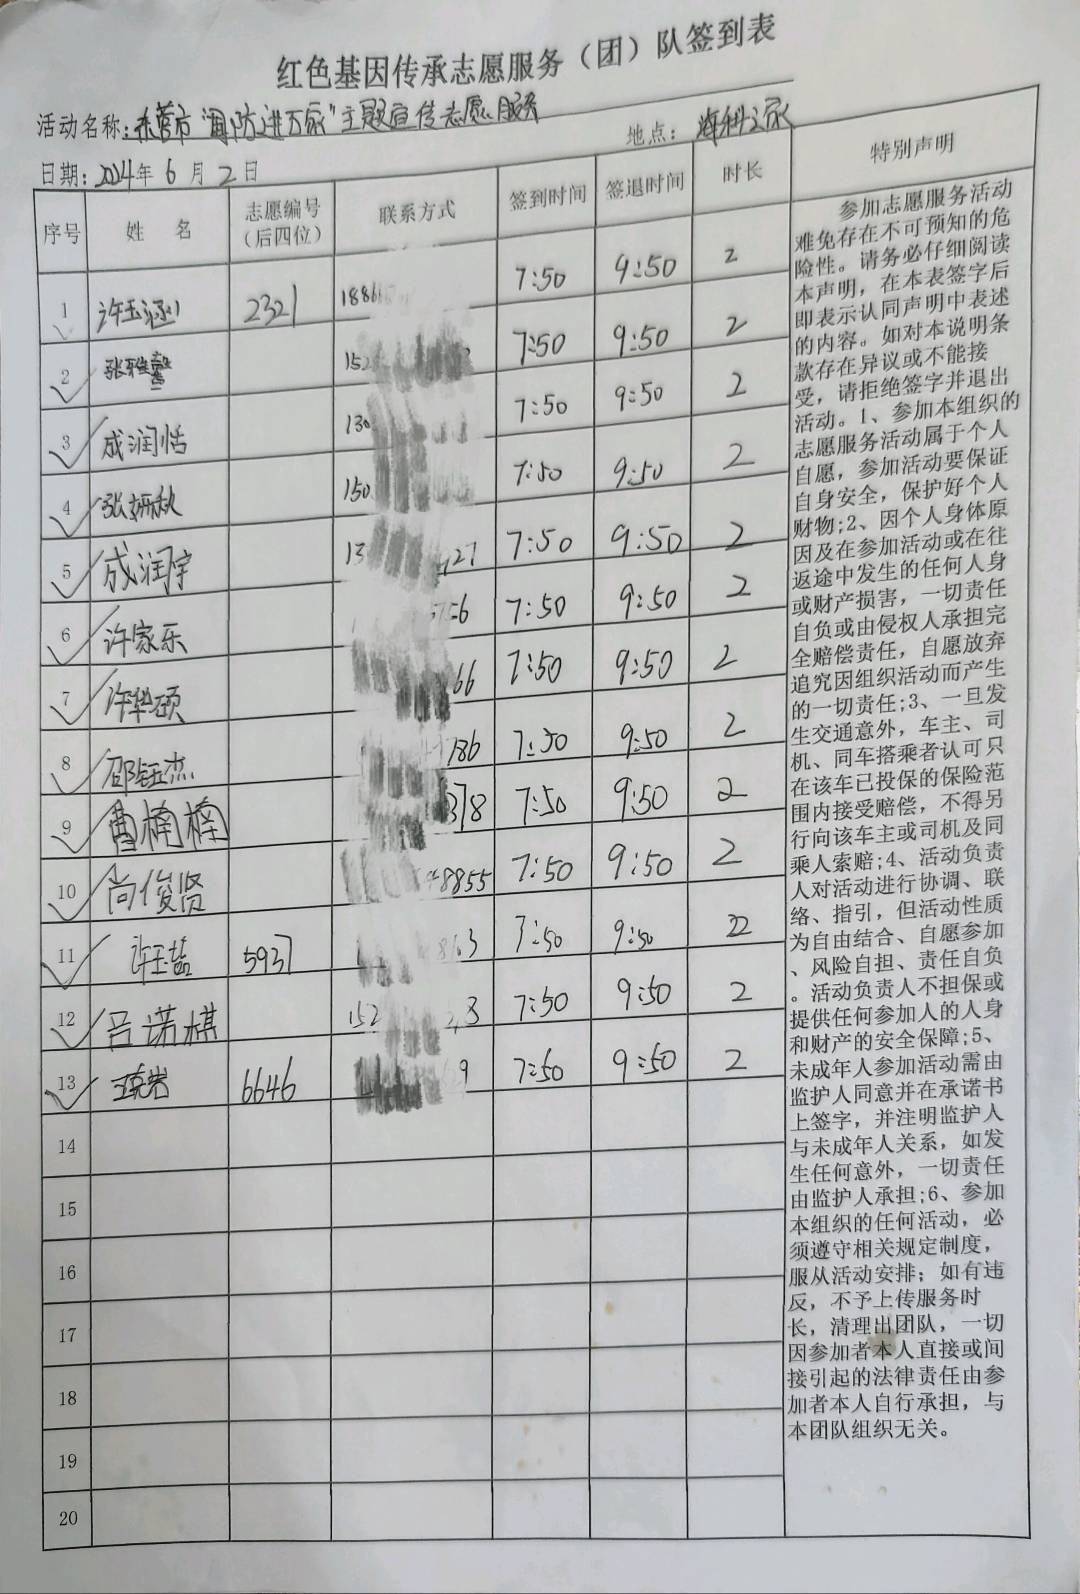 红色基因传承志愿服务（团）队签到表
活动名称：东营市"国防进万家"主题宣传志愿服务 地点：海科之家
日期：2024年6月2日
序号 姓名 志愿编号（后四位） 联系方式 签到时间 签退时间 时长 特别声明
1 许玉涵 2321 1886 7:50 9:50 2
2 张雅 152 7:50 9:50 2
3 成润恬 130 7:50 9:50 2
4 张妍秋 150 7:50 9:50 2
5 成润宇 13 27 7:50 9:50 2
6 许家乐 5756 7:50 9:50 2
7 许华硕 66 7:50 9:50 2
8 邵钰杰 786 7:50 9:50 2
9 曹楠楠 378 7:50 9:50 2
10 尚俊贤 8855 7:50 9:50 2
11 许玉喆 5937 863 7:50 9:50 2
12 吕诺棋 152 3 7:50 9:50 2
13 6646 9 7:50 9:50 2
14
15
16
17
18
19
20
参加志愿服务活动
难免存在不可预知的危
险性。请务必仔细阅读
本声明，在本表签字后
即表示认同声明中表述
的内容。如对本说明条
款存在异议或不能接
受，请拒绝签字并退出
活动。1、参加本组织的
志愿服务活动属于个人
自愿，参加活动要保证
自身安全，保护好个人
财物;2、因个人身体原
因及在参加活动或在往
返途中发生的任何人身
或财产损害，一切责任
自负或由侵权人承担完
全赔偿责任，自愿放弃
追究因组织活动而产生
的一切责任;3、一旦发
生交通意外，车主、司
机、同车搭乘者认可只
在该车已投保的保险范
围内接受赔偿，不得另
行向该车主或司机及同
乘人索赔;4、活动负责
人对活动进行协调、联
络、指引，但活动性质
为自由结合、自愿参加
、风险自担、责任自负
。活动负责人不担保或
提供任何参加人的人身
和财产的安全保障;5、
未成年人参加活动需由
监护人同意并在承诺书
上签字，并注明监护人
与未成年人关系，如发
生任何意外，一切责任
由监护人承担;6、参加
本组织的任何活动，必
须遵守相关规定制度，
服从活动安排；如有违
反，不予上传服务时
长，清理出团队，一切
因参加者本人直接或间
接引起的法律责任由参
加者本人自行承担，与
本团队组织无关。